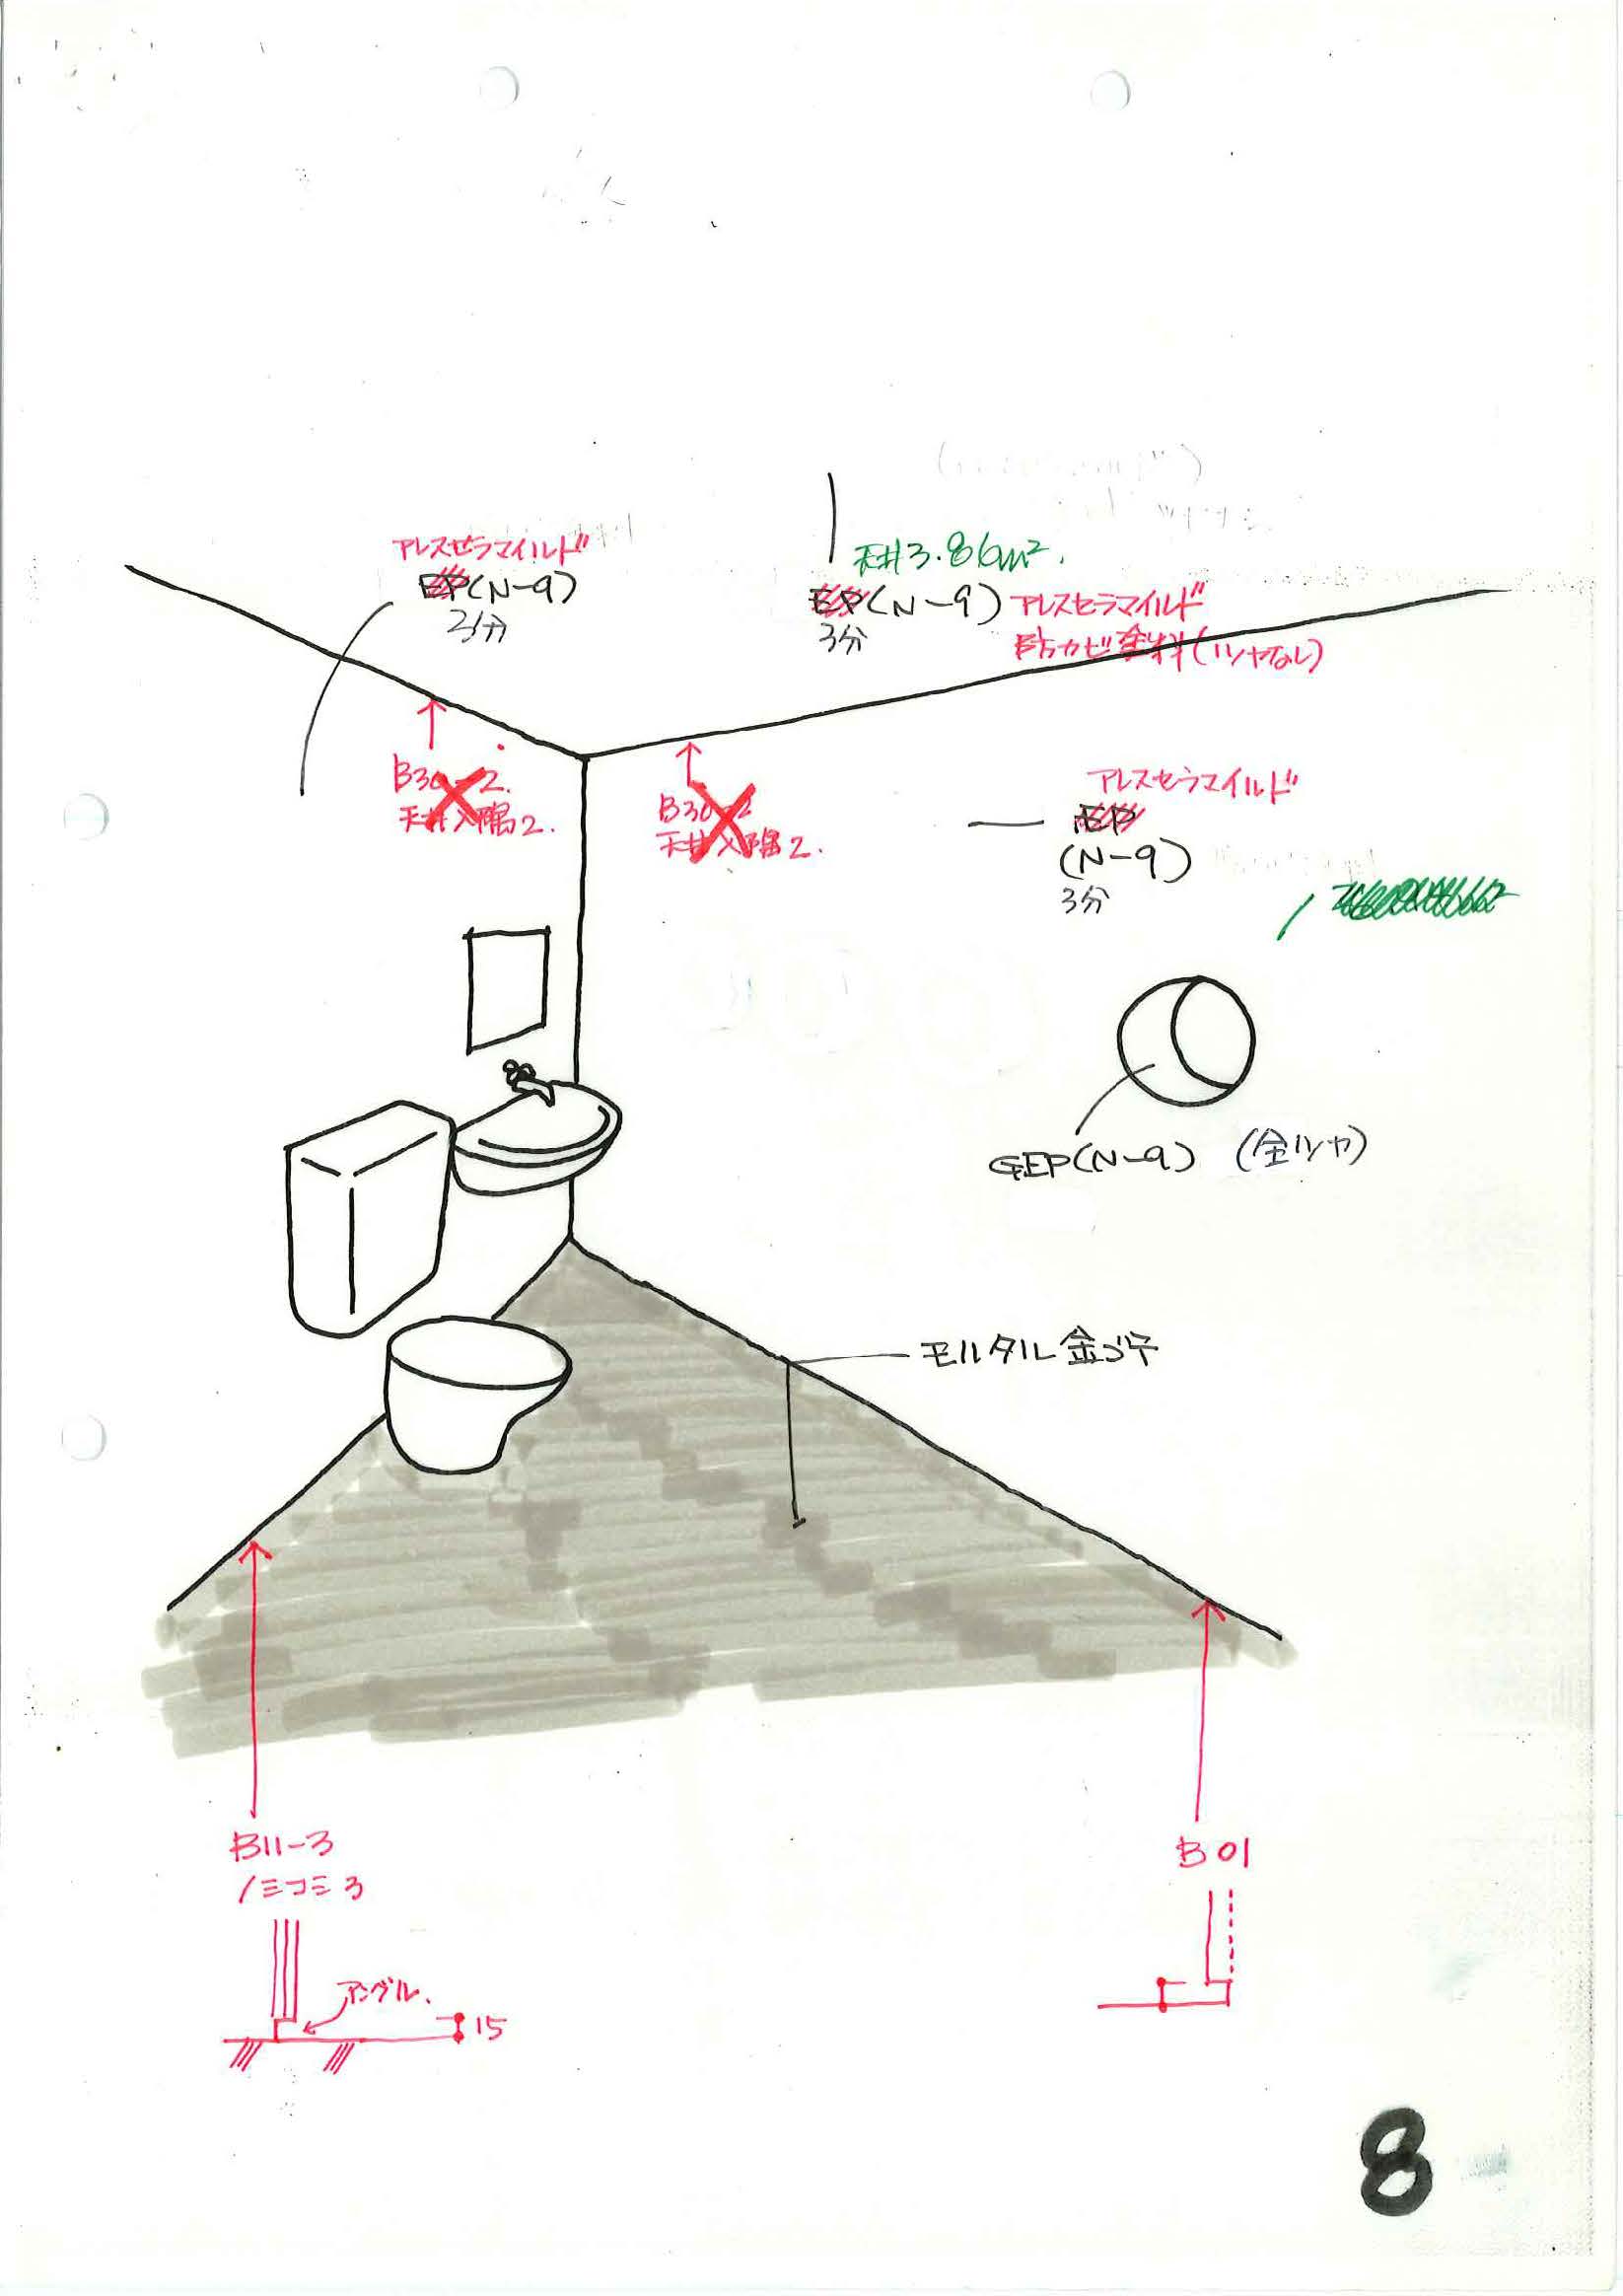 アレスセラマイルド
EP(N-9)
3分
天井3.86m².
EP(N-9) アレスセラマイルド
3分
防カビ塗料(ツヤなし)
B30-2.
天井入隅2.
B30-2
天井入隅2.
アレスセラマイルド
EP
(N-9)
3分
GEP(N-9) (全ツヤ)
モルタル金ゴテ
B11-3
ノミコミ3
アングル.
15
B01
8